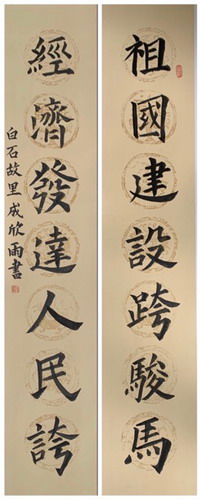 祖國建設跨駿馬
經濟發達人民誇
白石故里成欣雨書